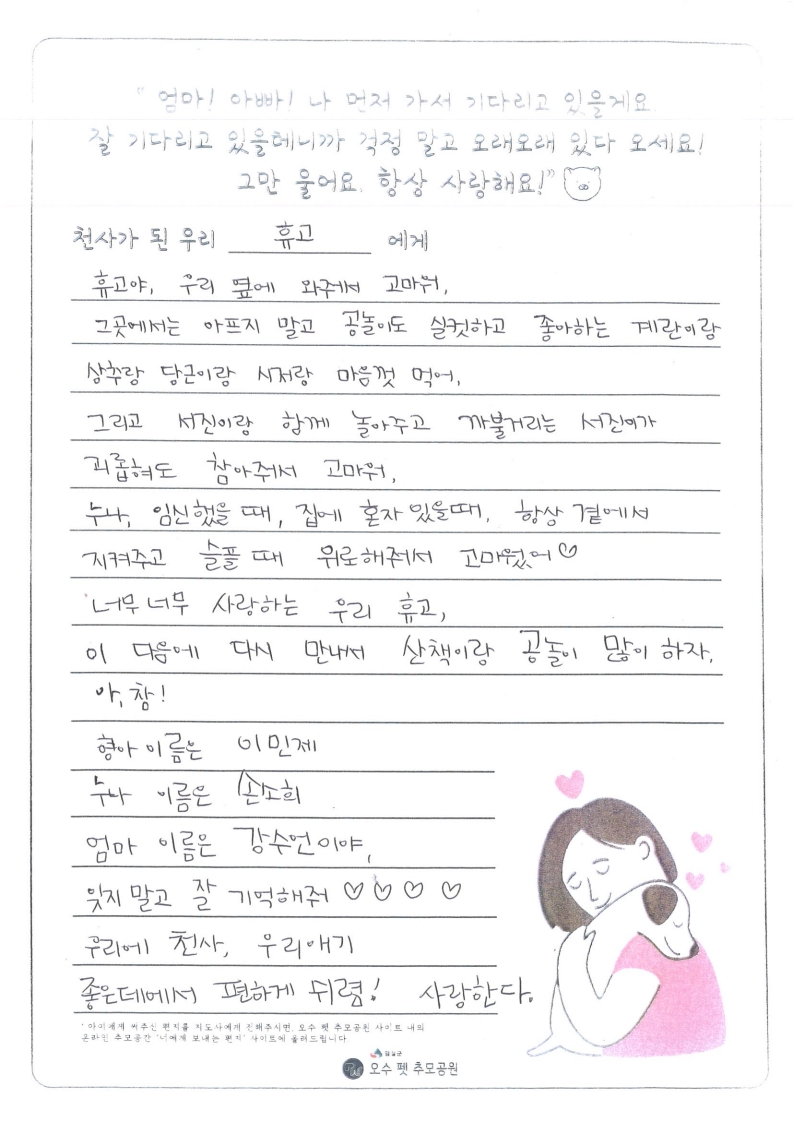 "엄마! 아빠! 나 먼저 가서 기다리고 있을게요.
잘 기다리고 있을테니까 걱정 말고 오래오래 있다 오세요!
그만 울어요. 항상 사랑해요!"
천사가 된 우리 휴고 에게
휴고야, 우리 옆에 와줘서 고마워,
그곳에서는 아프지 말고 공놀이도 실컷하고 좋아하는 계란이랑
상추랑 당근이랑 시저랑 마음껏 먹어,
그리고 서진이랑 함께 놀아주고 까불거리는 서진이가
괴롭혀도 참아줘서 고마워,
누나, 임신했을 때, 집에 혼자 있을때, 항상 곁에서
지켜주고 슬플 때 위로해줘서 고마웠어♡
너무너무 사랑하는 우리 휴고,
이 다음에 다시 만나서 산책이랑 공놀이 많이 하자,
아, 참!
형아 이름은 이민제
누나 이름은 손소희
엄마 이름은 강수언이야,
잊지말고 잘 기억해줘 ♡ ♡ ♡ ♡
우리에 천사, 우리애기
좋은데에서 편하게 쉬렴! 사랑한다.
* 아이에게 써주신 편지를 지도사에게 전해주시면, 오수 펫 추모공원 사이트 내의
온라인 추모공간 '너에게 보내는 편지' 사이트에 올려드립니다.
임실군
오수 펫 추모공원